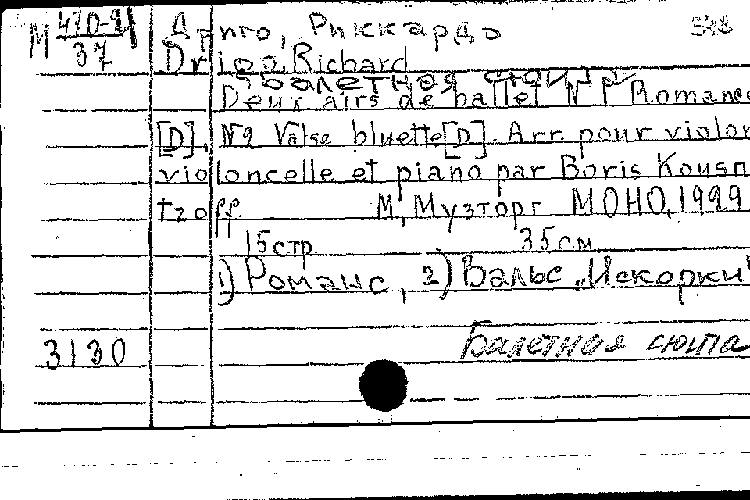 М 470-21
37
Дриго, Риккардо
Drigo, Richard
Балетная
Deux airs de ballet N 1 Romance
[D]. №2 Valse bluette [D]. Arr. pour violon
violoncelle et piano par Boris Kousn
tzoff. М, Музторг МОНО, 1929
15 стр 35 см
1) Романс, 2) Вальс „Искорки"
3130
Балетная сюита